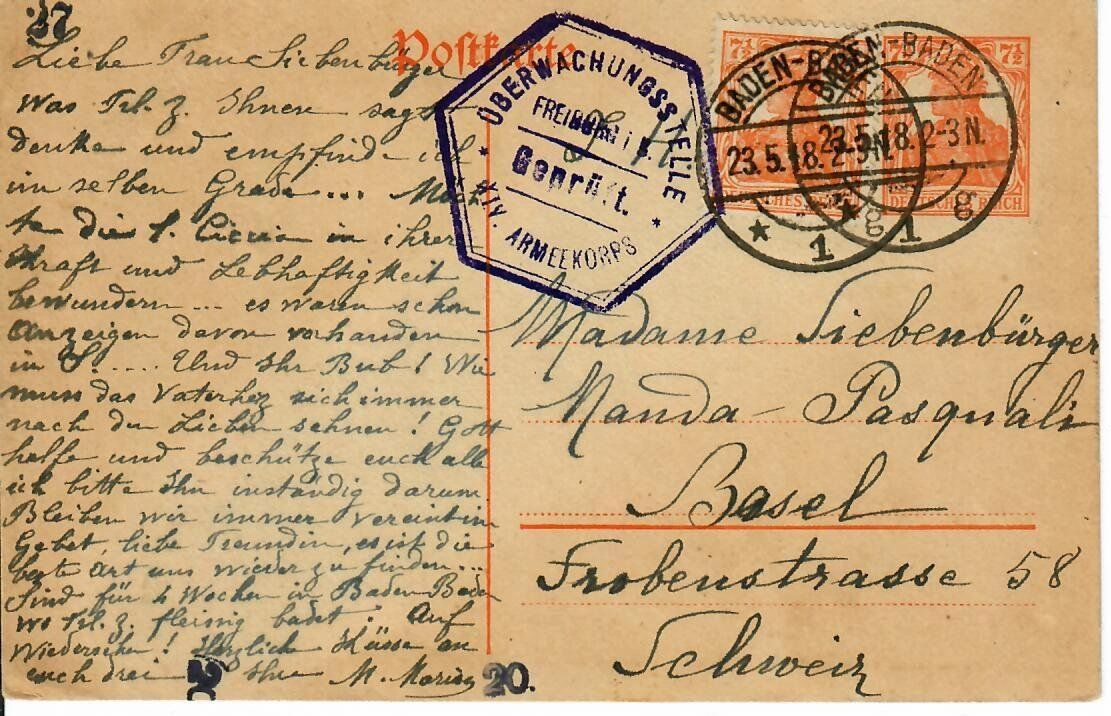 37
Postkarte
Liebe Frau Siebenbürger
Was Frl. Z. Ihnen sagt
denke und empfinde ich
im selben Grade ...
te die in ihrer
Kraft und Lebhaftigkeit
bewundern ... es waren schon
Anzeigen davon vorhanden
in S. .... Und Ihr Bub! Wie
muss das Vaterherz sich immer
nach den Lieben sehnen! Gott
helfe und beschütze euch alle
ich bitte Ihn inständig darum
Bleiben wir immer vereint im
Gebet, liebe Freundin, es ist die
beste Art uns wieder zu finden ...
Sind für 4 Wochen in Baden-Baden
wo Frl. Z. fleissig badet. Auf
Wiedersehen! Herzliche Küsse an
euch drei Ihre M.
20
20.
ÜBERWACHUNGSSTELLE
FREIBURG i. B.
Geprüft.
* XIV. ARMEEKORPS *
7½ 7½
BADEN-BADEN
23.5.18. 2-3 N.
* 1 g
DEUTSCHES REICH
7½ 7½
BADEN-BADEN
23.5.18. 2-3 N.
* 1 g
DEUTSCHES REICH
Madame Siebenbürger
Manda-Pasquali
Basel
Frobenstrasse 58
Schweiz